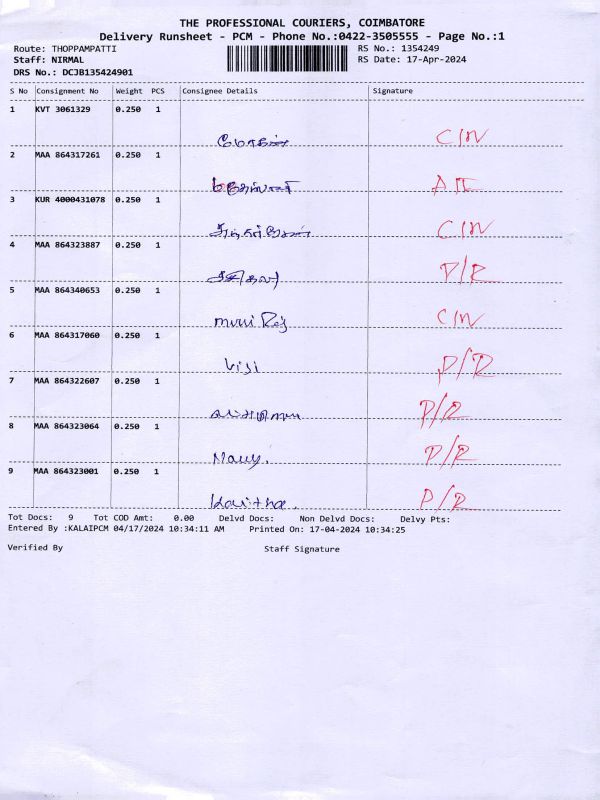 THE PROFESSIONAL COURIERS, COIMBATORE
Delivery Runsheet - PCM - Phone No.:0422-3505555 - Page No.:1
Route: THOPPAMPATTI RS No.: 1354249
Staff: NIRMAL RS Date: 17-Apr-2024
DRS No.: DCJB135424901
S No Consignment No Weight PCS Consignee Details Signature
1 KVT 3061329 0.250 1
C/N
2 MAA 864317261 0.250 1
3 KUR 4000431078 0.250 1
C/N
4 MAA 864323887 0.250 1
சசிகலா P/R
5 MAA 864340653 0.250 1
C/N
6 MAA 864317060 0.250 1
Viji P/R
7 MAA 864322607 0.250 1
P/R
8 MAA 864323064 0.250 1
P/R
9 MAA 864323001 0.250 1
Kavitha P/R
Tot Docs: 9 Tot COD Amt: 0.00 Delvd Docs: Non Delvd Docs: Delvy Pts:
Entered By :KALAIPCM 04/17/2024 10:34:11 AM Printed On: 17-04-2024 10:34:25
Verified By Staff Signature